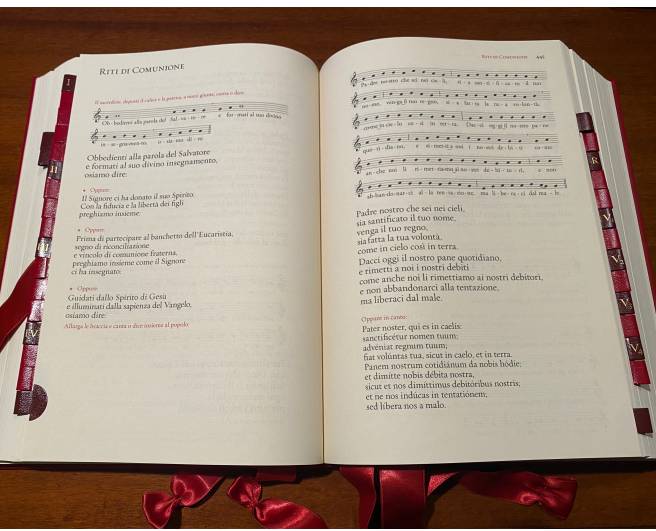 Riti di Comunione
Il sacerdote, deposti il calice e la patena, a mani giunte, canta o dice:
Ob - bedienti alla parola del Sal - va - to - re e for - mati al suo divino
in - se - gna - men - to, o - sia - mo di - re:
Obbedienti alla parola del Salvatore
e formati al suo divino insegnamento,
osiamo dire:
Oppure:
Il Signore ci ha donato il suo Spirito.
Con la fiducia e la libertà dei figli
preghiamo insieme:
Oppure:
Prima di partecipare al banchetto dell'Eucaristia,
segno di riconciliazione
e vincolo di comunione fraterna,
preghiamo insieme come il Signore
ci ha insegnato:
Oppure:
Guidati dallo Spirito di Gesù
e illuminati dalla sapienza del Vangelo,
osiamo dire:
Allarga le braccia e canta o dice insieme al popolo:
I
II
V
Riti di Comunione 441
Pa - dre no - stro che sei nei cie - li, si - a san - ti - fi - ca - to il tuo
no - me, ven - ga il tuo re - gno, si - a fat - ta la tu - a vo - lon - tà,
come in cie - lo co - sì in ter - ra. Dac - ci og - gi il no - stro pa - ne
quo - ti - dia - no, e ri - met - ti a noi i no - stri de - bi - ti co - me
an - che noi li ri - met - tia - mo ai no - stri de - bi - to - ri, e non
ab - ban - do - nar - ci al - la ten - ta - zio - ne, ma li - be - ra - ci dal ma - le.
Padre nostro che sei nei cieli,
sia santificato il tuo nome,
venga il tuo regno,
sia fatta la tua volontà,
come in cielo così in terra.
Dacci oggi il nostro pane quotidiano,
e rimetti a noi i nostri debiti
come anche noi li rimettiamo ai nostri debitori,
e non abbandonarci alla tentazione,
ma liberaci dal male.
Oppure in canto:
Pater noster, qui es in caelis:
sanctificétur nomen tuum;
advéniat regnum tuum;
fiat volúntas tua, sicut in caelo, et in terra.
Panem nostrum cotidiánum da nobis hódie;
et dimítte nobis débita nostra,
sicut et nos dimíttimus debitóribus nostris;
et ne nos indúcas in tentatiónem;
sed líbera nos a malo.
R
V
V
V
V